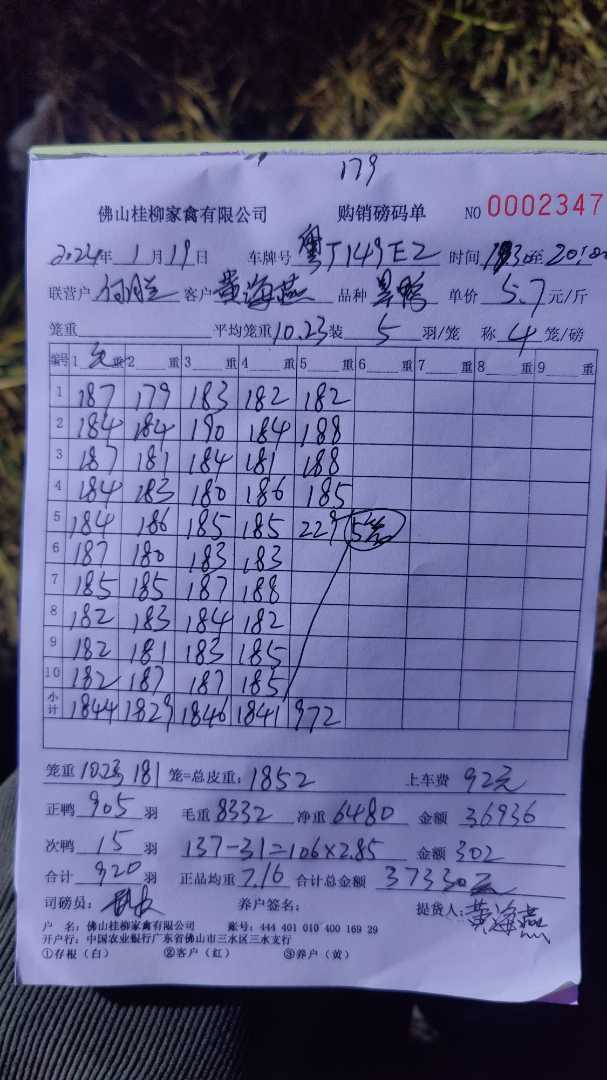 179
佛山桂柳家禽有限公司 购销磅码单 NO 0002347
2024年 1月19日 车牌号 粤J149E2 时间 至20:00
联营户 客户 黄海燕 品种 鸭 单价 5.7 元/斤
笼重 平均笼重10.23装 5 羽/笼 称 4 笼/磅
编号 1 毛 重 2 重 3 重 4 重 5 重 6 重 7 重 8 重 9 重
1 187 179 183 182 182
2 184 184 190 184 188
3 187 181 184 181 188
4 184 183 180 186 185
5 184 186 185 185 229 5笼
6 187 180 183 183
7 185 185 187 188
8 182 183 184 182
9 182 181 183 185
10 182 187 187 185
小计 1844 1829 1846 1841 972
笼重 10.23 181 笼=总皮重:1852 上车费 92元
正鸭 905 羽 毛重 8332 净重 6480 金额 36936
次鸭 15 羽 137-31=106×2.85 金额 302
合计 920 羽 正品均重 7.16 合计总金额 37330元
司磅员: 养户签名: 提货人: 黄海燕
户 名: 佛山桂柳家禽有限公司 账号: 444 401 010 400 169 29
开户行: 中国农业银行广东省佛山市三水区三水支行
①存根(白) ②客户(红) ③养户(黄)